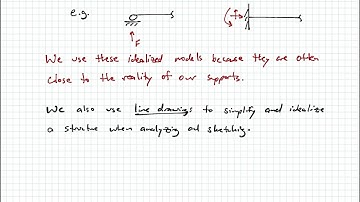 e.g.
F
We use these idealized models because they are often
close to the reality of our supports.
We also use line drawings to simplify and idealize
a structure when analyzing and sketching.